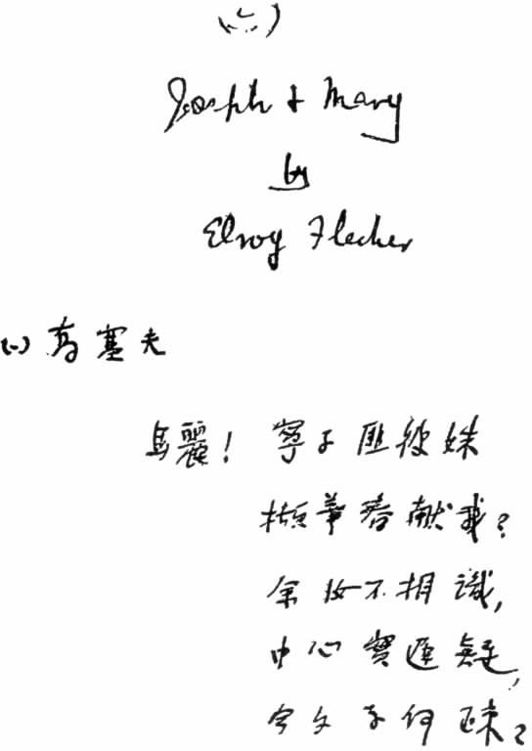 (六)
Joseph & Mary
by
Elroy Flecker
(一) 塞夫
馬麗! 寧子匪彼姝
擷華春献我?
余汝不相識,
中心實疑,
今夕何